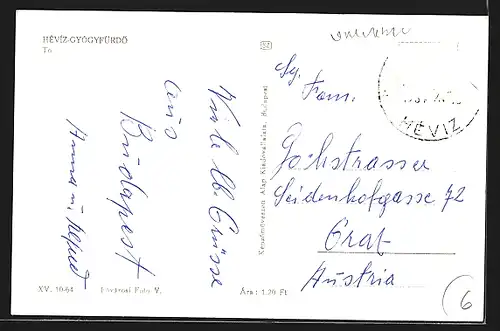 HÉVÍZ-GYÓGYFÜRDŐ
Tó
Viele lb. Grüsse
aus
Budapest
Anna u. Alfred
Képzőművészeti Alap Kiadóvállalata, Budapest
Sg.
Fam.
Gochstrasser
Seidenhofgasse 72
Graz
Austria
HÉVÍZ
XV. 10-64
Ára: 1.20 Ft
6